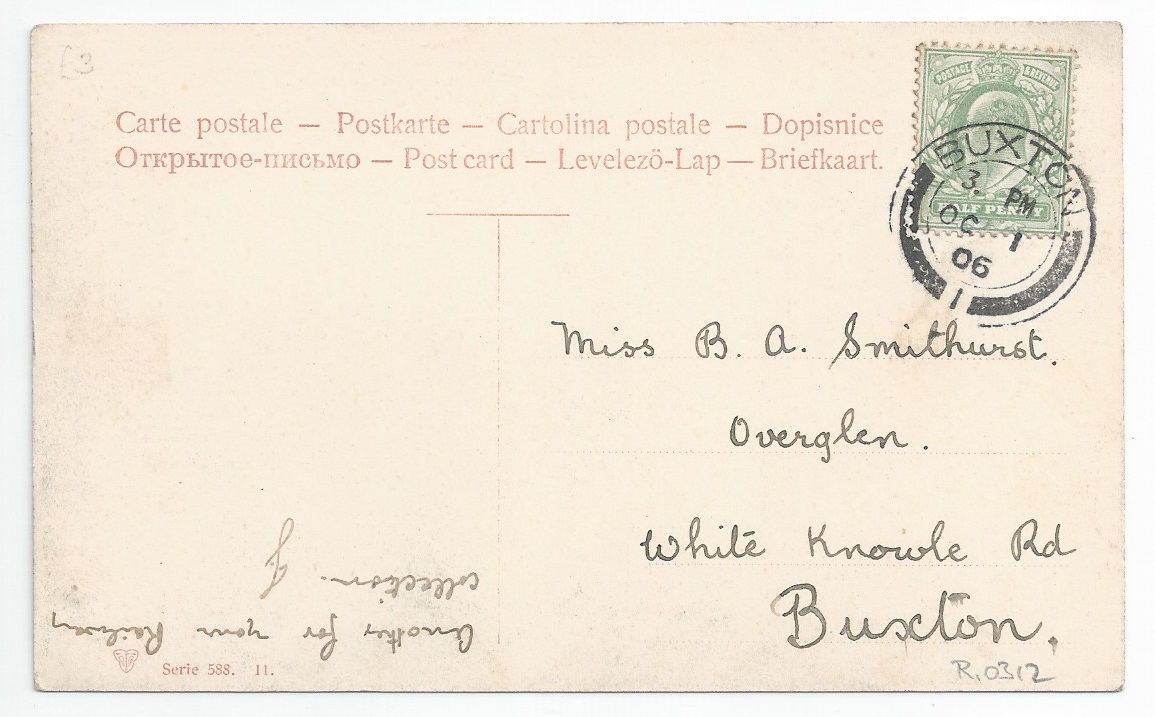 £3
Carte postale — Postkarte — Cartolina postale — Dopisnice
Открытое-письмо — Post card — Levelező-Lap — Briefkaart.
POSTAGE REVENUE
HALF PENNY
BUXTON
3. PM
OC 1
06
1
Miss B. A. Smithurst.
Overglen.
White Knowle Rd
Buxton.
Another for your Railway
collection. J
Serie 588. 11.
R.0312